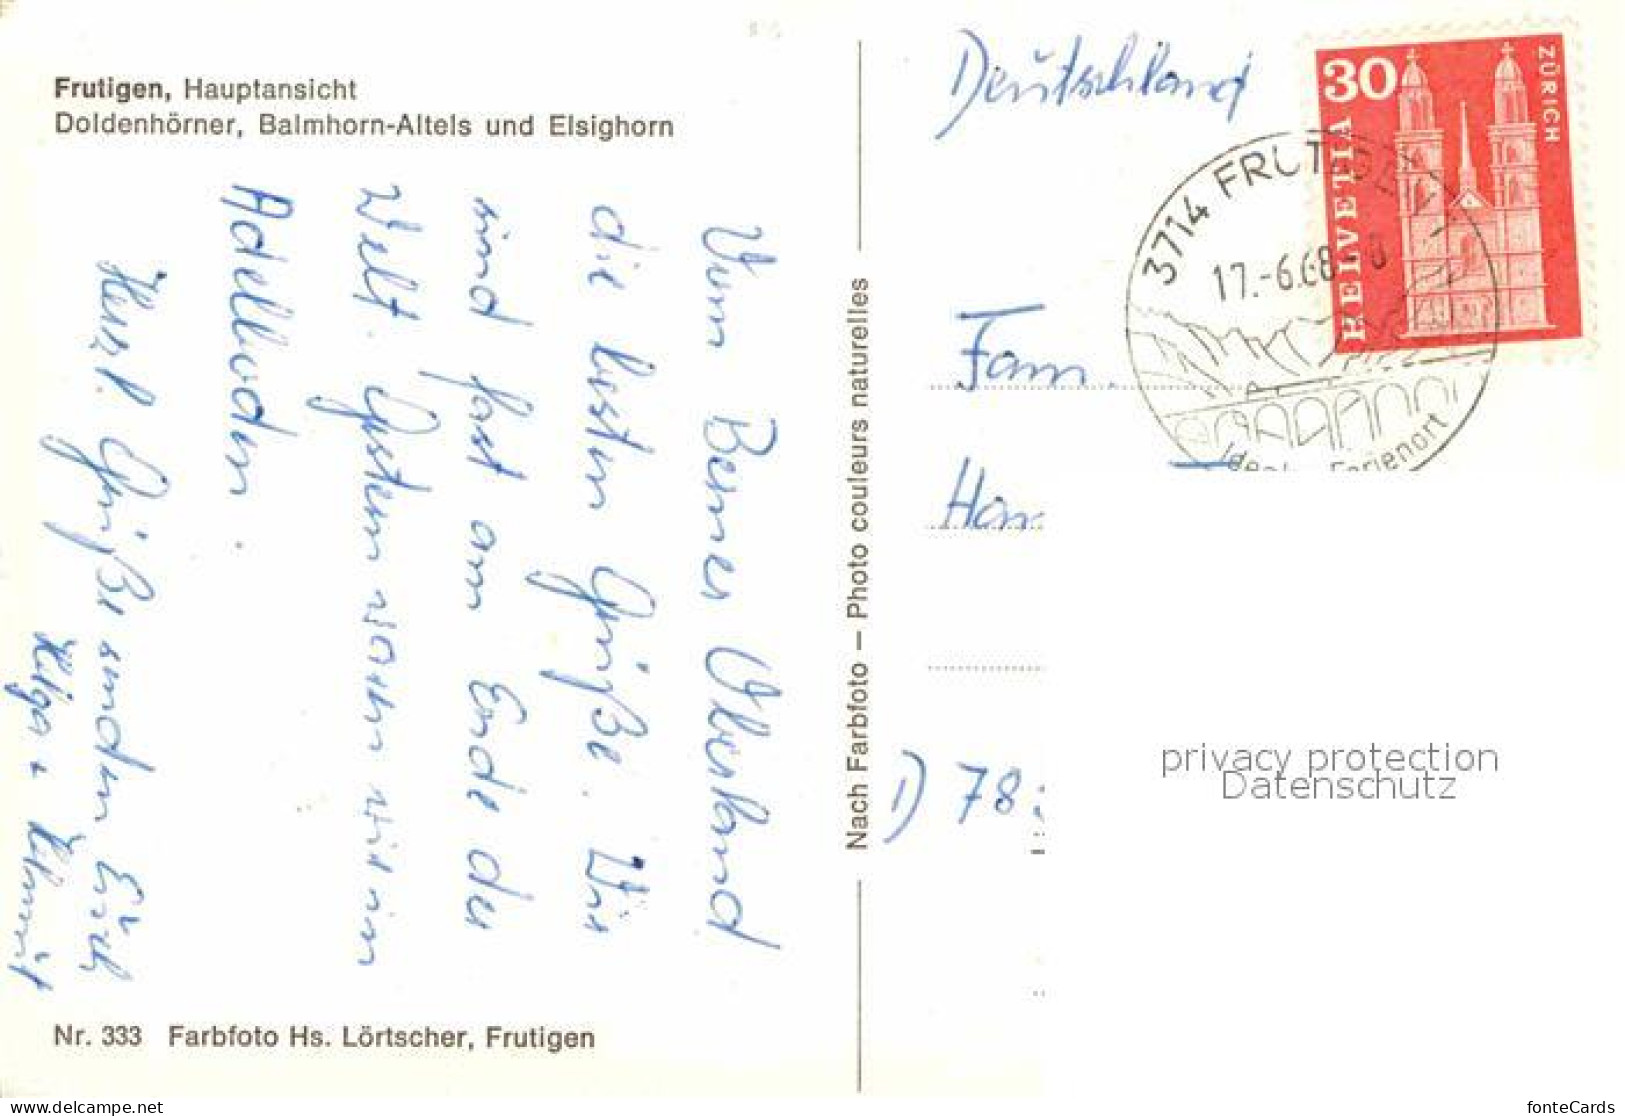 Frutigen, Hauptansicht
Doldenhörner, Balmhorn-Altels und Elsighorn
Vom Berner Oberland
die besten Grüße. Wir
sind fast am Ende der
Welt. Gestern waren wir in
Adelboden.
Herzl. Grüße senden Euch
Helga + Helmut
Nr. 333 Farbfoto Hs. Lörtscher, Frutigen
Nach Farbfoto — Photo couleurs naturelles
Deutschland
30
HELVETIA
ZÜRICH
3714 FRUTIGEN
17.-6.68
Idealer Ferienort
Fam.
D 78
privacy protection
Datenschutz
www.delcampe.net
fonteCards